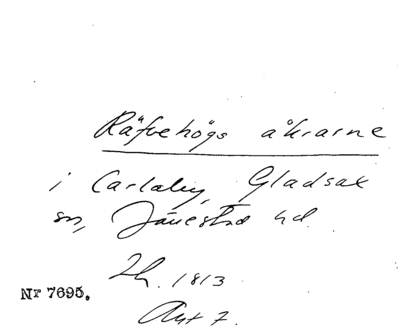 Räfvehögs åkrarne
i Carlaby, Gladsax
sn, Järrestad hd.
Lh. 1813
Nr 7695.
Akt 7.